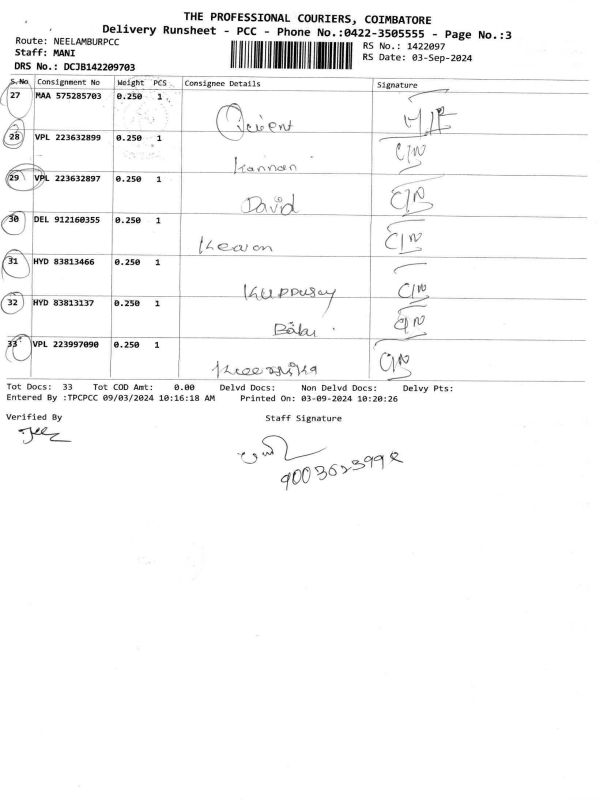 THE PROFESSIONAL COURIERS, COIMBATORE
Delivery Runsheet - PCC - Phone No.:0422-3505555 - Page No.:3
Route: NEELAMBURPCC RS No.: 1422097
Staff: MANI RS Date: 03-Sep-2024
DRS No.: DCJB142209703
S.No Consignment No Weight PCS Consignee Details Signature
27 MAA 575285703 0.250 1
28 VPL 223632899 0.250 1 Kannan C/N
29 VPL 223632897 0.250 1 David C/N
30 DEL 912160355 0.250 1 C/N
31 HYD 83813466 0.250 1 C/N
32 HYD 83813137 0.250 1 C/N
33 VPL 223997090 0.250 1 C/N
Tot Docs: 33 Tot COD Amt: 0.00 Delvd Docs: Non Delvd Docs: Delvy Pts:
Entered By :TPCPCC 09/03/2024 10:16:18 AM Printed On: 03-09-2024 10:20:26
Verified By Staff Signature